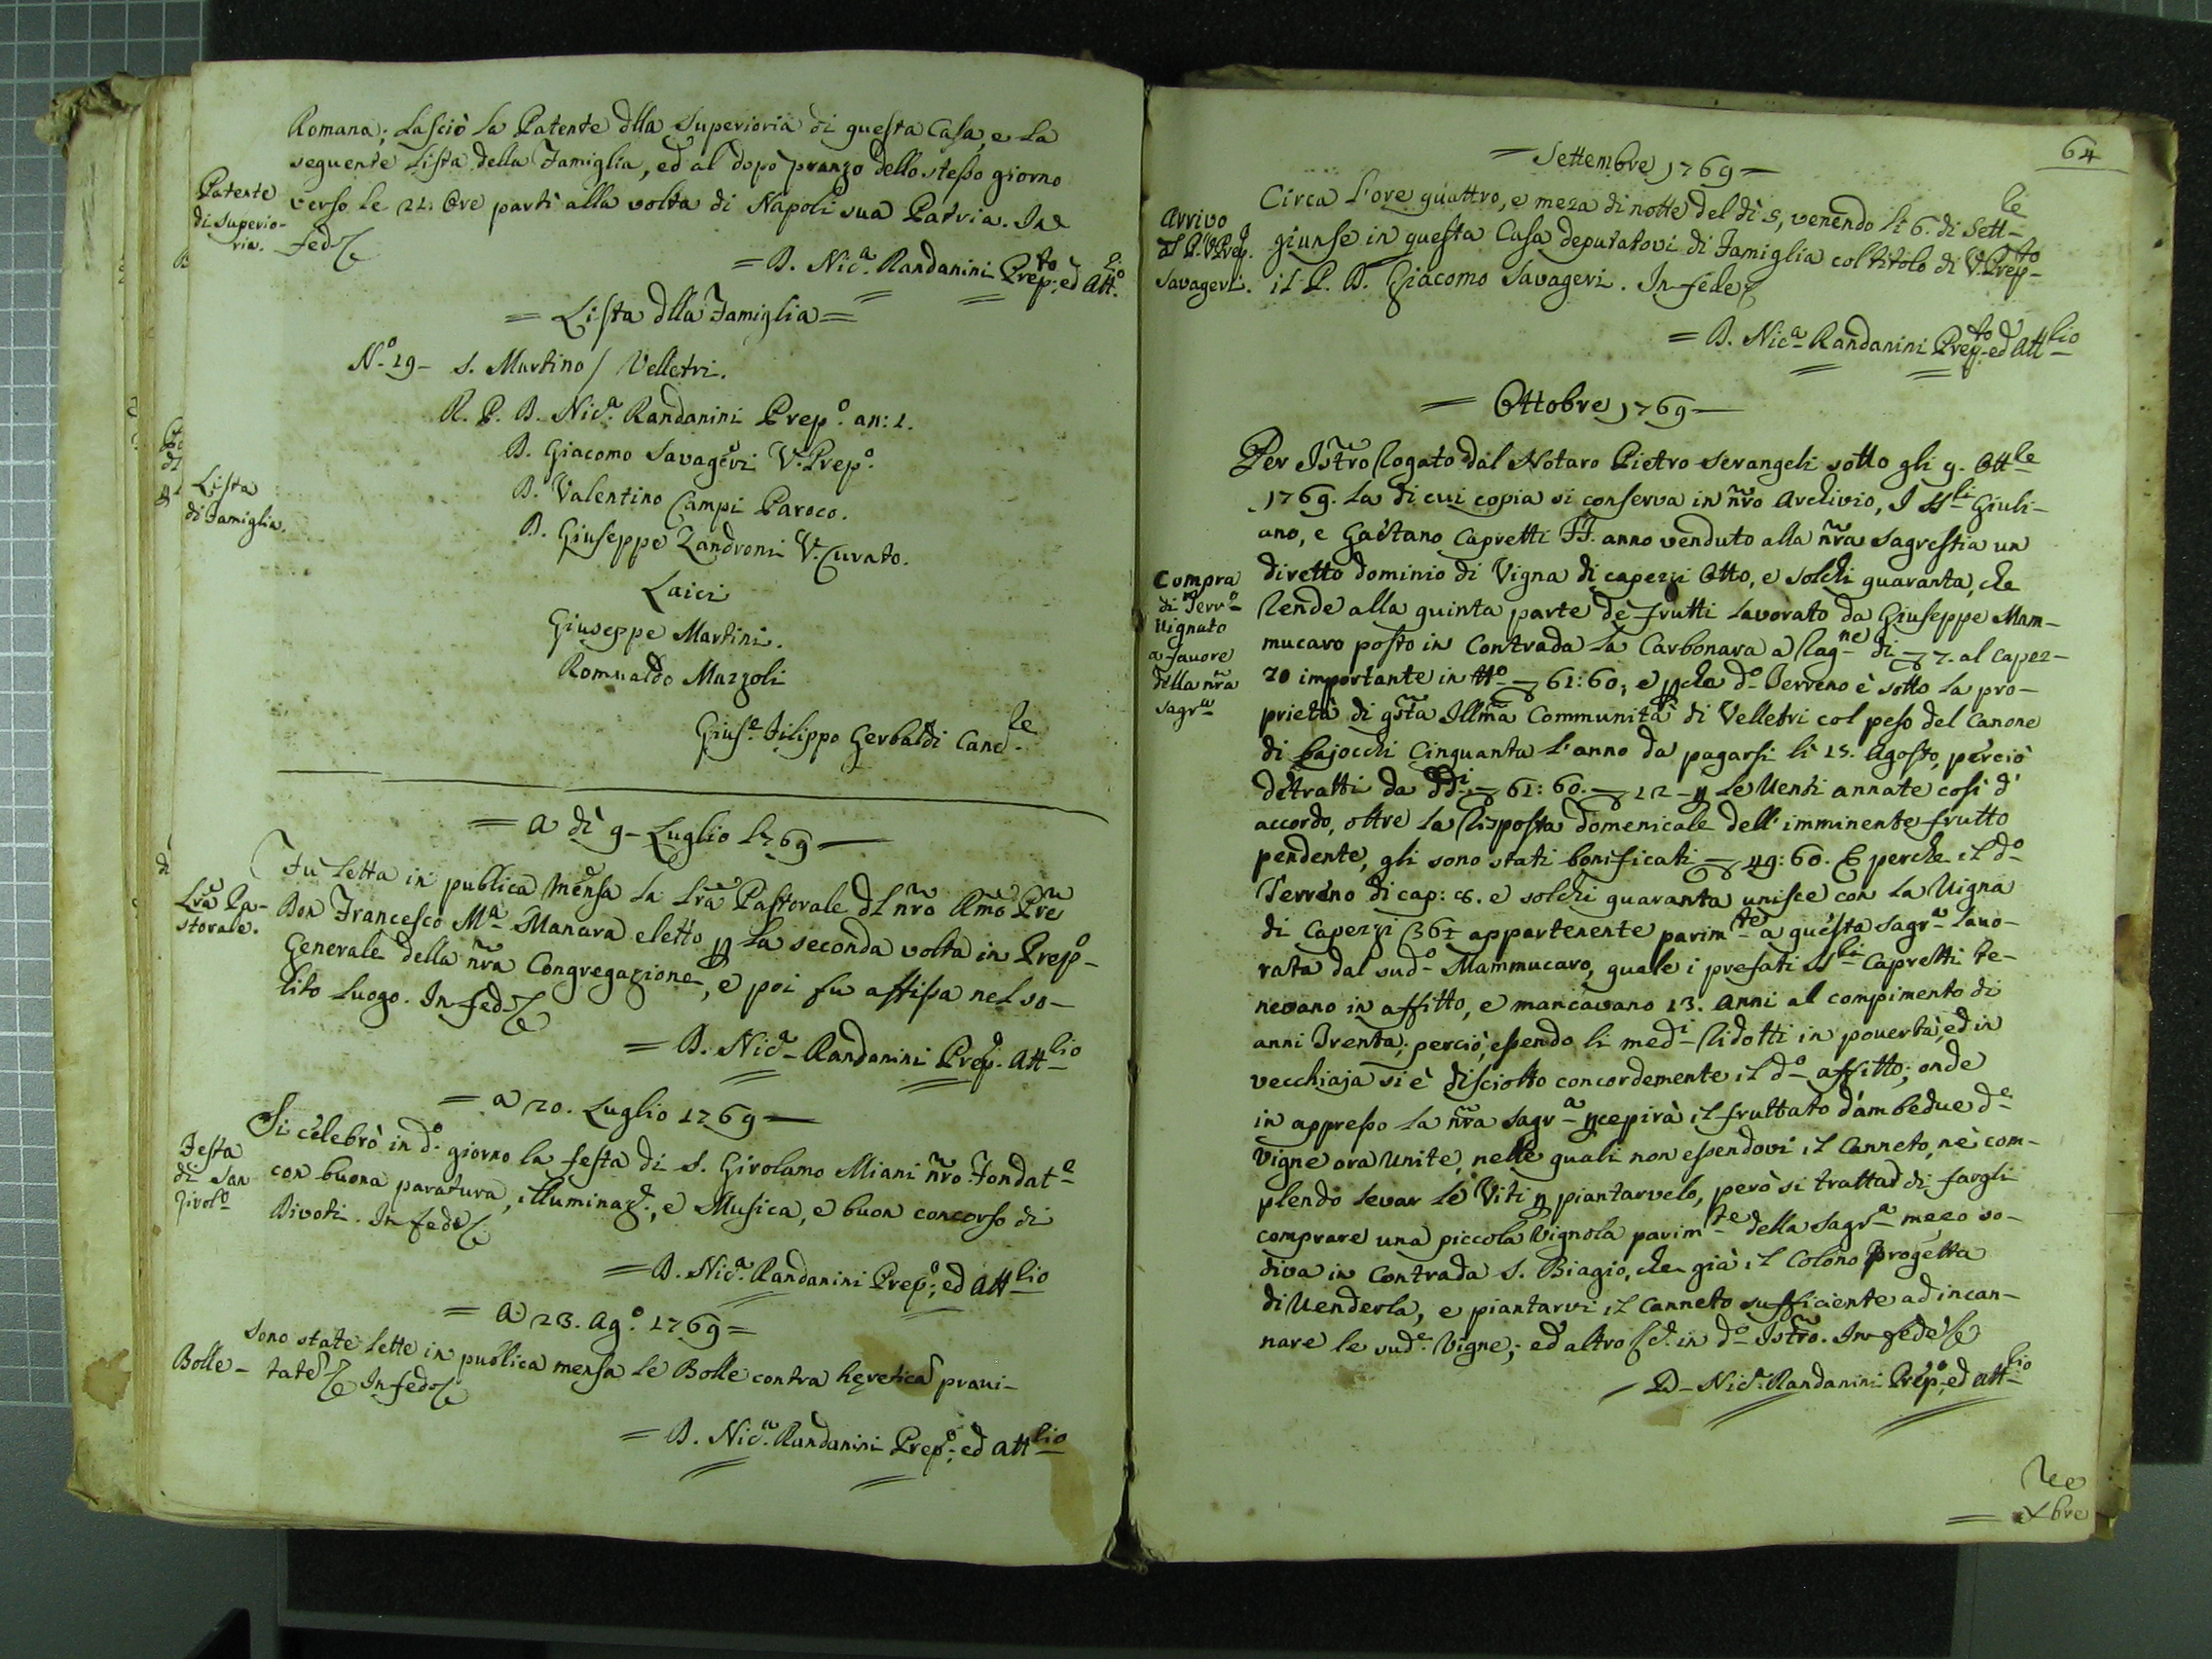 Romana; Lasciò la Patente dlla Superioria di questa Casa, e la
seguente Lista della Famiglia, ed al dopo pranzo dello stesso giorno
Patente
di Superio-
ria.
verso le 21. Ore partì alla volta di Napoli sua Patria. In
fed
= D. Nic.a Randanini Prep.to ed Att.
= Lista dlla Famiglia =
N.o 19 - S. Martino / Velletri.
R. P. D. Nic.a Randanini Prep.o an: 1.
D. Giacomo Savageri V. Prep.o
Lista
di Famiglia.
D. Valentino Campi Paroco.
D. Giuseppe Zandroni V. Curato.
Laici
Giuseppe Martini.
Romualdo Mazzoli
Gius.e Filippo Gerbaldi Canc.le
= A dì 9 - Luglio 1769 -
Lra Pa-
storale.
Fu letta in publica mensa la Lra Pastorale dl nro Rmo Pre
Don Francesco M.a Manara eletto p la seconda volta in Prep.o
Generale della nra Congregazione, e poi fu affissa nel so-
lito luogo. In fed
= D. Nic.a Randanini Prep.o Att.lio
= a 20. Luglio 1769 -
Festa
di San
Girol.o
Si celebrò in d.o giorno la festa di S. Girolamo Miani nro Fondat.e
con buona paratura, illuminaz.e, e Musica, e buon concorso di
Divoti. In fede
= D. Nic.a Randanini Prep.o; ed Att.lio
= A 23. Ag.o 1769 =
Bolle -
Sono state lette in publica mensa le Bolle contra hęretica pravi-
tate In fed
= D. Nic.a Randanini Prep.o; ed Att.lio
64
= Settembre 1769 =
Arrivo
dl P. V. Prep.
Savageri.
Circa l'ore quattro, e meza di notte del dì 5, venendo li 6. di Sett.le
giunse in questa Casa deputatovi di Famiglia col titolo di V. Prep.to
il P. D. Giacomo Savageri. In fede
= D. Nic.a Randanini Prep.to ed Att.lio
= Ottobre 1769 -
Per Istro Rogato dal Notaro Pietro Serangeli sotto gli 9. Ott.le
1769. la di cui copia si conserva in nro Archivio, I SS.li Giuli-
ano, e Gaetano Capretti FF. anno venduto alla nra Sagrestia un
Compra
di Terr.o
Vignato
a favore
della nra
Sagr.a
diretto dominio di Vigna di capezzi Otto, e solchi quaranta, che
Rende alla quinta parte de frutti lavorato da Giuseppe Mam-
mucaro posto in Contrada la Carbonara a Rag.ne di 7. al capez-
zo importante in tt.o 61:60; e pche d.o Terreno è sotto la pro-
prietà di qsta Illma Communità di Velletri col peso del Canone
di bajocchi Cinquanta l'anno da pagarsi li 15. Agosto, perciò
detratti da dd.i 61:60. 12 - p le Venti annate così d'
accordo, oltre la Risposta domenicale dell'imminente frutto
pendente, gli sono stati bonificati 49:60. E perche il d.o
Terreno di cap: 8. e solchi quaranta unisce con la Vigna
di Capezzi 36 appartenente parim.te a questa Sagr.a lavo-
rata dal sud.o Mammucaro, quale i prefati SS.li Capretti te-
nevano in affitto, e mancavano 13. anni al compimento di
anni Trenta; perciò, essendo li med.i Ridotti in povertà, ed in
vecchiaja si è disciolto concordemente il d.o affitto; onde
in appresso la nra Sagr.a pcepirà il fruttato d'ambedue d.e
Vigne ora unite, nelle quali non essendovi il Canneto, nè com-
plendo levar le Viti p piantarvelo, però si tratta di fargli
comprare una piccola Vignola parim.te della Sagr.a mezo so-
diva in Contrada S. Biagio, che già il Colono progetta
di Venderla, e piantarvi il Canneto sufficiente ad incan-
nare le sud.e Vigne; ed altro in d.o Istro. In fede
- D. Nic.a Randanini Prep.o; ed Att.lio
= Xbre